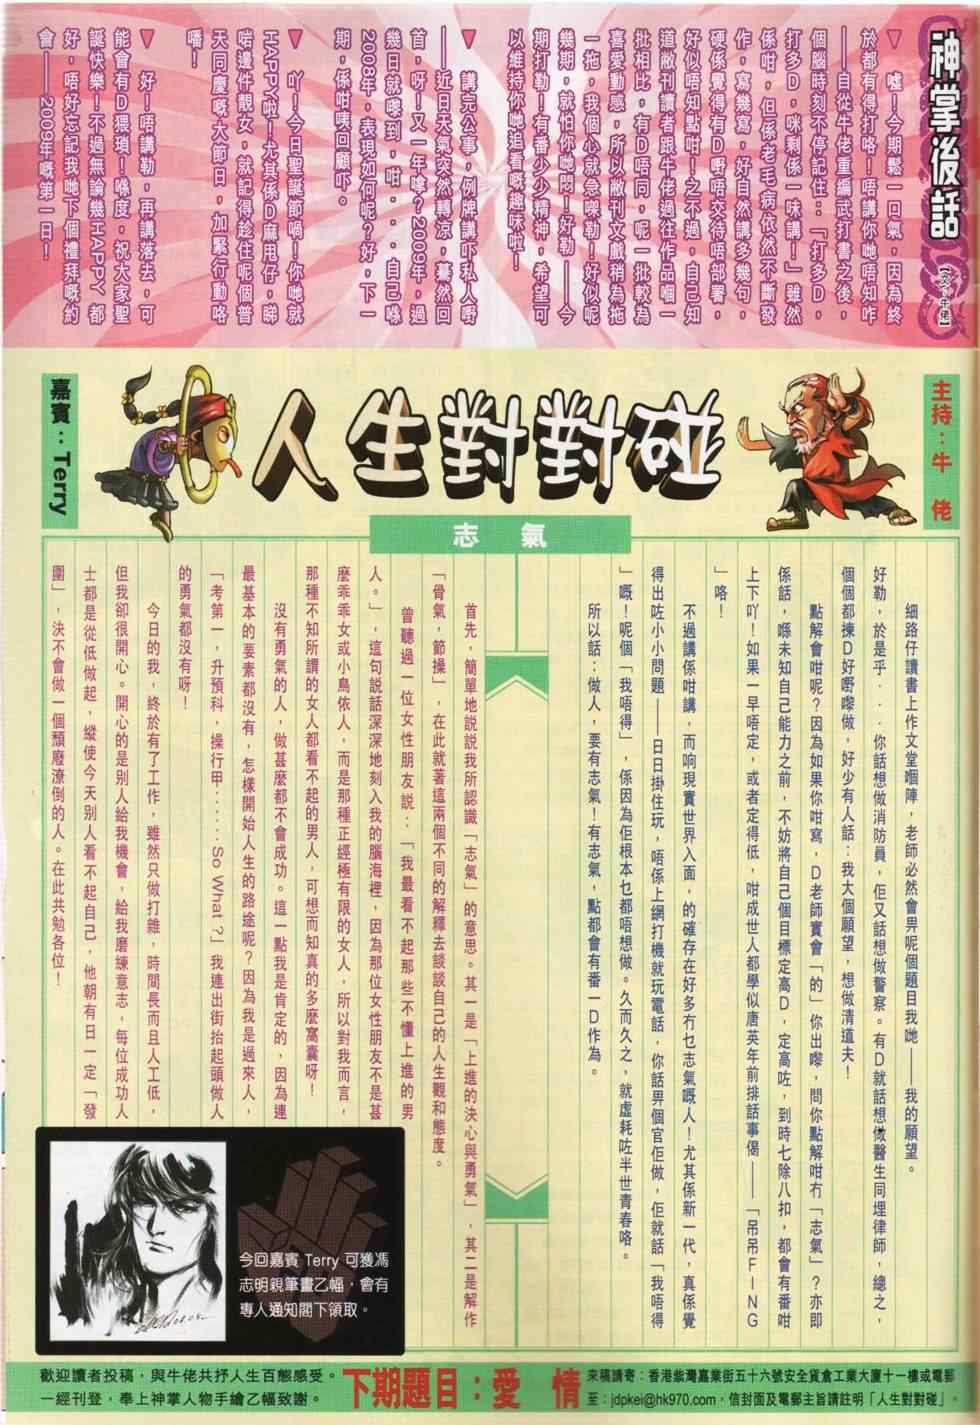 神掌後話
【文：牛佬】
▼　噓！今期鬆一口氣，因為終
於都有得打咯！唔講你哋唔知咋
——自從牛佬重編武打書之後，
個腦時刻不停記住：「打多D，
打多D，咪剩係一味講！」雖然
係咁，但係老毛病依然不斷發
作，寫幾寫，好自然講多幾句，
硬係覺得有D嘢唔交待唔部署，
好似唔知點咁！之不過，自己知
道敝刊讀者跟牛佬過往作品嗰一
批相比，有D唔同，呢一批較為
喜愛動感，所以敝刊文戲稍為拖
一拖，我個心就急㗎勒！好似呢
幾期，就怕你哋悶！好勒——今
期打勒！有番少少精神，希望可
以維持你哋追看嘅趣味啦！
▼　講完公事，例牌講吓私人嘢
——近日天氣突然轉涼，驀然回
首，呀！又一年嗱？2009年，過
幾日就嚟到，咁...自己喺
2008年，表現如何呢？好，下一
期，係咁咦回顧吓。
▼　台！今日聖誕節喎！你哋就
HAPPY啦！尤其係D麻甩仔，睇
啱邊件靚女，就記得趁住呢個普
天同慶嘅大節日，加緊行動咯
噃！
▼　好！唔講勒，再講落去，可
能會有D猥瑣！喺度，祝大家聖
誕快樂！不過無論幾HAPPY 都
好，唔好忘記我哋下個禮拜嘅約
會——2009年嘅第一日！
主持：牛佬
人生對對碰
嘉賓：Terry
志氣
細路仔讀書上作文堂嗰陣，老師必然會畀呢個題目我哋——我的願望。
好勒，於是乎...你話想做消防員，佢又話想做警察。有D就話想做醫生同埋律師，總之，
個個都揀D好嘢嚟做，好少有人話：我大個願望，想做清道夫！
點解會咁呢？因為如果你咁寫，D老師實會「的」你出嚟，問你點解咁冇「志氣」？亦即
係話，喺未知自己能力之前，不妨將自己個目標定高D，定高咗，到時七除八扣，都會有番咁
上下吖！如果一早唔定，或者定得低，咁成世人都學似唐英年前排話事偈——「吊吊FING
」咯！
不過講係咁講，而响現實世界入面，的確存在好多冇乜志氣嘅人！尤其係新一代，真係覺
得出咗小小問題——日日掛住玩，唔係上網打機就玩電話，你話畀個官佢做，佢就話「我唔得
」嘅！呢個「我唔得」，係因為佢根本乜都唔想做。久而久之，就虛耗咗半世青春咯。
所以話：做人，要有志氣！有志氣，點都會有番一D作為。
首先，簡單地說說我所認識「志氣」的意思。其一是「上進的決心與勇氣」，其二是解作
「骨氣，節操」，在此就著這兩個不同的解釋去談談自己的人生觀和態度。
曾聽過一位女性朋友說：「我最看不起那些不懂上進的男
人。」，這句說話深深地刻入我的腦海裡，因為那位女性朋友不是甚
麼乖乖女或小鳥依人，而是那種正經極有限的女人，所以對我而言，
那種不知所謂的女人都看不起的男人，可想而知真的多麼窩囊呀！
沒有勇氣的人，做甚麼都不會成功。這一點我是肯定的，因為連
最基本的要素都沒有，怎樣開始人生的路途呢？因為我是過來人，
「考第一，升預科，操行甲……So What？」我連出街抬起頭做人
的勇氣都沒有呀！
今日的我，終於有了工作，雖然只做打雜，時間長而且人工低，
但我卻很開心。開心的是別人給我機會，給我磨練意志，每位成功人
士都是從低做起，縱使今天別人看不起自己，他朝有日一定「發
圍」，決不會做一個頹廢潦倒的人。在此共勉各位！
今回嘉賓 Terry 可獲馮
志明親筆畫乙幅，會有
專人通知閣下領取。
歡迎讀者投稿，與牛佬共抒人生百態感受。
一經刊登，奉上神掌人物手繪乙幅致謝。
下期題目：愛情
來稿請寄：香港柴灣嘉業街五十六號安全貨倉工業大廈十一樓或電郵
至：jdpkei@hk970.com，信封面及電郵主旨請註明「人生對對碰」。